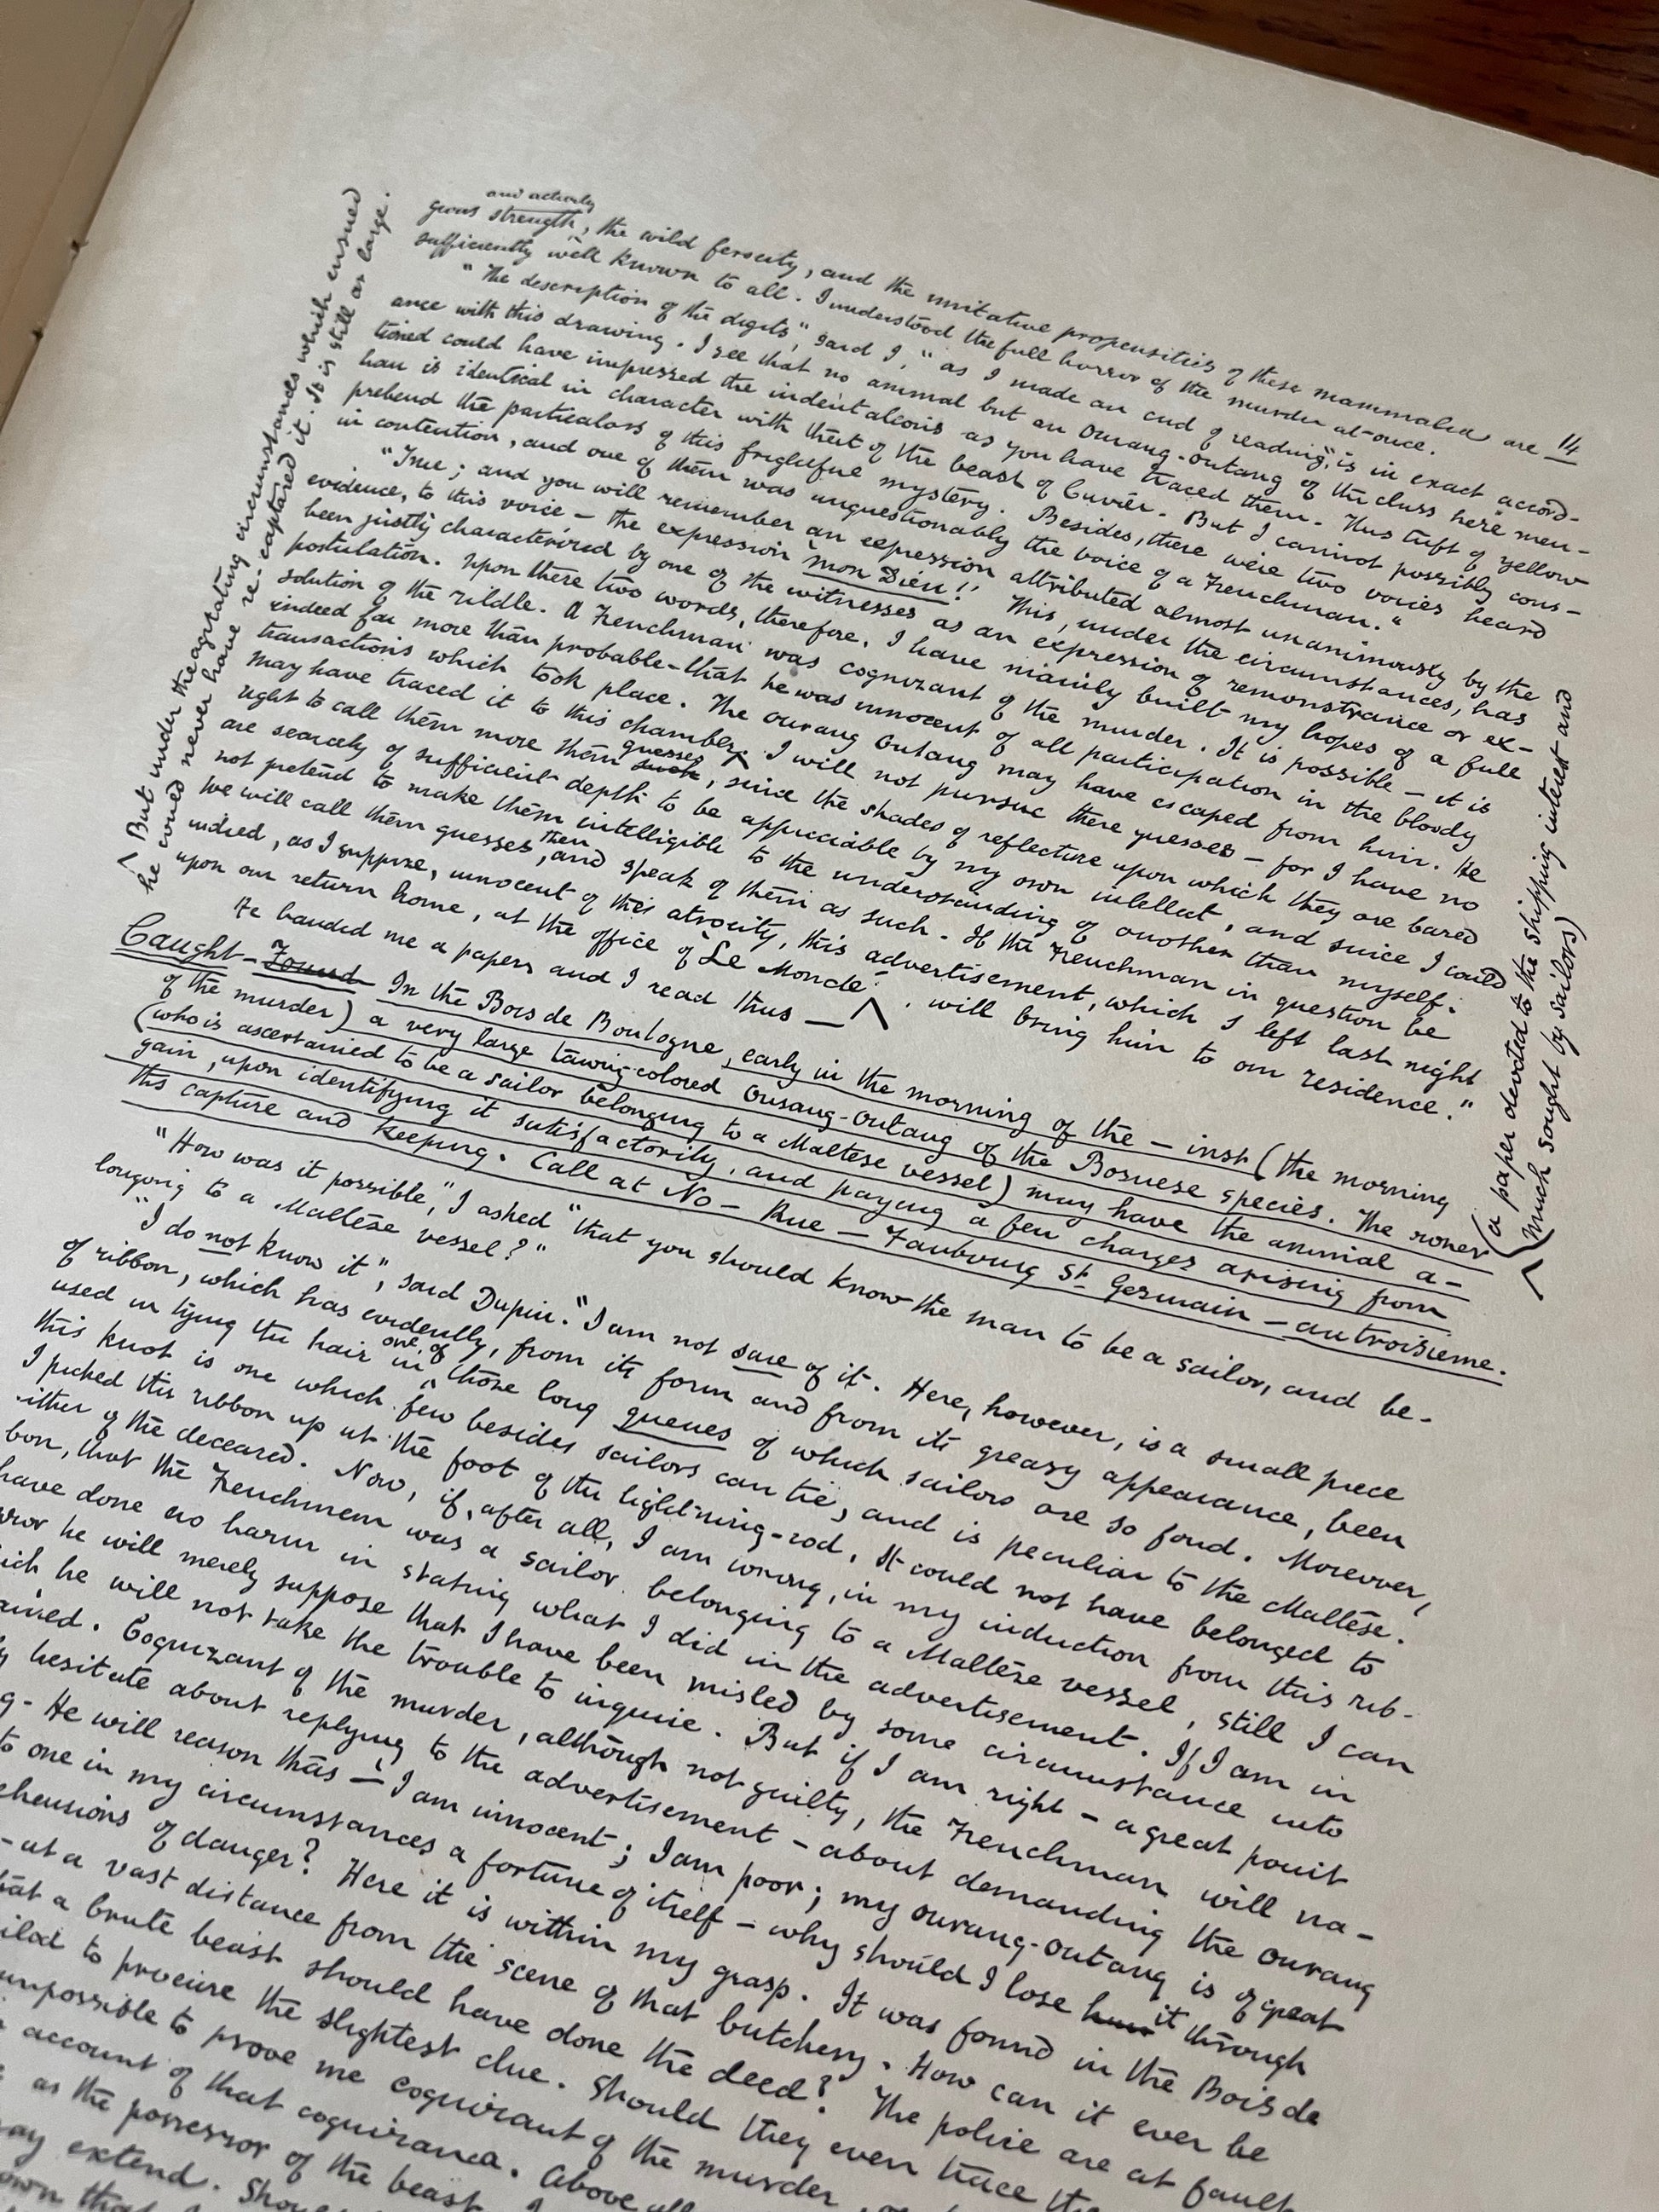 14
and activity
gious strength, the wild ferocity, and the imitative propensities of these mammalia are
sufficiently well known to all. I understood the full horror of the murder at once.
"The description of the digits", said I, "as I made an end of reading, "is in exact accord-
ance with this drawing. I see that no animal but an Ourang-Outang of the class here men-
tioned could have impressed the indentations as you have traced them. This tuft of yellow
hair is identical in character with that of the beast of Cuvier. But I cannot possibly com-
prehend the particulars of this frightful mystery. Besides, there were two voices heard
in contention, and one of them was unquestionably the voice of a Frenchman."
"True; and you will remember an expression attributed almost unanimously by the
evidence, to this voice – the expression 'mon Dieu!' This, under the circumstances, has
been justly characterized by one of the witnesses as an expression of remonstrance or ex-
postulation. Upon these two words, therefore, I have mainly built my hopes of a full
solution of the riddle. A Frenchman was cognizant of the murder. It is possible – it is
indeed far more than probable – that he was innocent of all participation in the bloody
transactions which took place. The Ourang Outang may have escaped from him. He
may have traced it to this chamber. ^ I will not pursue these guesses – for I have no
guesses
right to call them more than such, since the shades of reflection upon which they are based
are scarcely of sufficient depth to be appreciable by my own intellect, and since I could
not pretend to make them intelligible to the understanding of another than myself.
then
We will call them guesses, and speak of them as such. If the Frenchman in question be
indeed, as I suppose, innocent of this atrocity, this advertisement, which I left last night
upon our return home, at the office of 'Le Monde' ^ will bring him to our residence."
He handed me a paper, and I read thus —
Caught – Found In the Bois de Boulogne, early in the morning of the – inst (the morning
of the murder) a very large tawny-colored Ourang-Outang of the Bornese species. The owner
(who is ascertained to be a sailor belonging to a Maltese vessel) may have the animal a-
gain, upon identifying it satisfactorily, and paying a few charges arising from
its capture and keeping. Call at No – Rue – Faubourg St. Germain – au troisieme.
"How was it possible," I asked "that you should know the man to be a sailor, and be-
longing to a Maltese vessel?"
"I do not know it", said Dupin. "I am not sure of it. Here, however, is a small piece
of ribbon, which has evidently, from its form and from its greasy appearance, been
one of
used in tying the hair in those long queues of which sailors are so fond. Moreover,
this knot is one which few besides sailors can tie, and is peculiar to the Maltese.
I picked the ribbon up at the foot of the lightning-rod. It could not have belonged to
either of the deceased. Now, if, after all, I am wrong, in my induction from this rib-
bon, that the Frenchman was a sailor belonging to a Maltese vessel, still I can
have done no harm in stating what I did in the advertisement. If I am in
error he will merely suppose that I have been misled by some circumstance into
which he will not take the trouble to inquire. But if I am right – a great point
ained. Cognizant of the murder, although not guilty, the Frenchman will na-
y hesitate about replying to the advertisement – about demanding the ourang
g. He will reason thus – 'I am innocent; I am poor; my ourang-outang is of great
it
to one in my circumstances a fortune of itself – why should I lose him through
ehensions of danger? Here it is within my grasp. It was found in the Bois de
– at a vast distance from the scene of that butchery. How can it ever be
hat a brute beast should have done the deed? The police are at fault
iled to procure the slightest clue. Should they even trace the
impossible to prove me cognizant of the murder,
account of that cognizance. Above all
as the possessor of the beast. I
ay extend. Shou
own that
^ But under the agitating circumstances which ensued
he could never have re-captured it. It is still at large.
(a paper devoted to the shipping interest and
^ much sought by sailors)